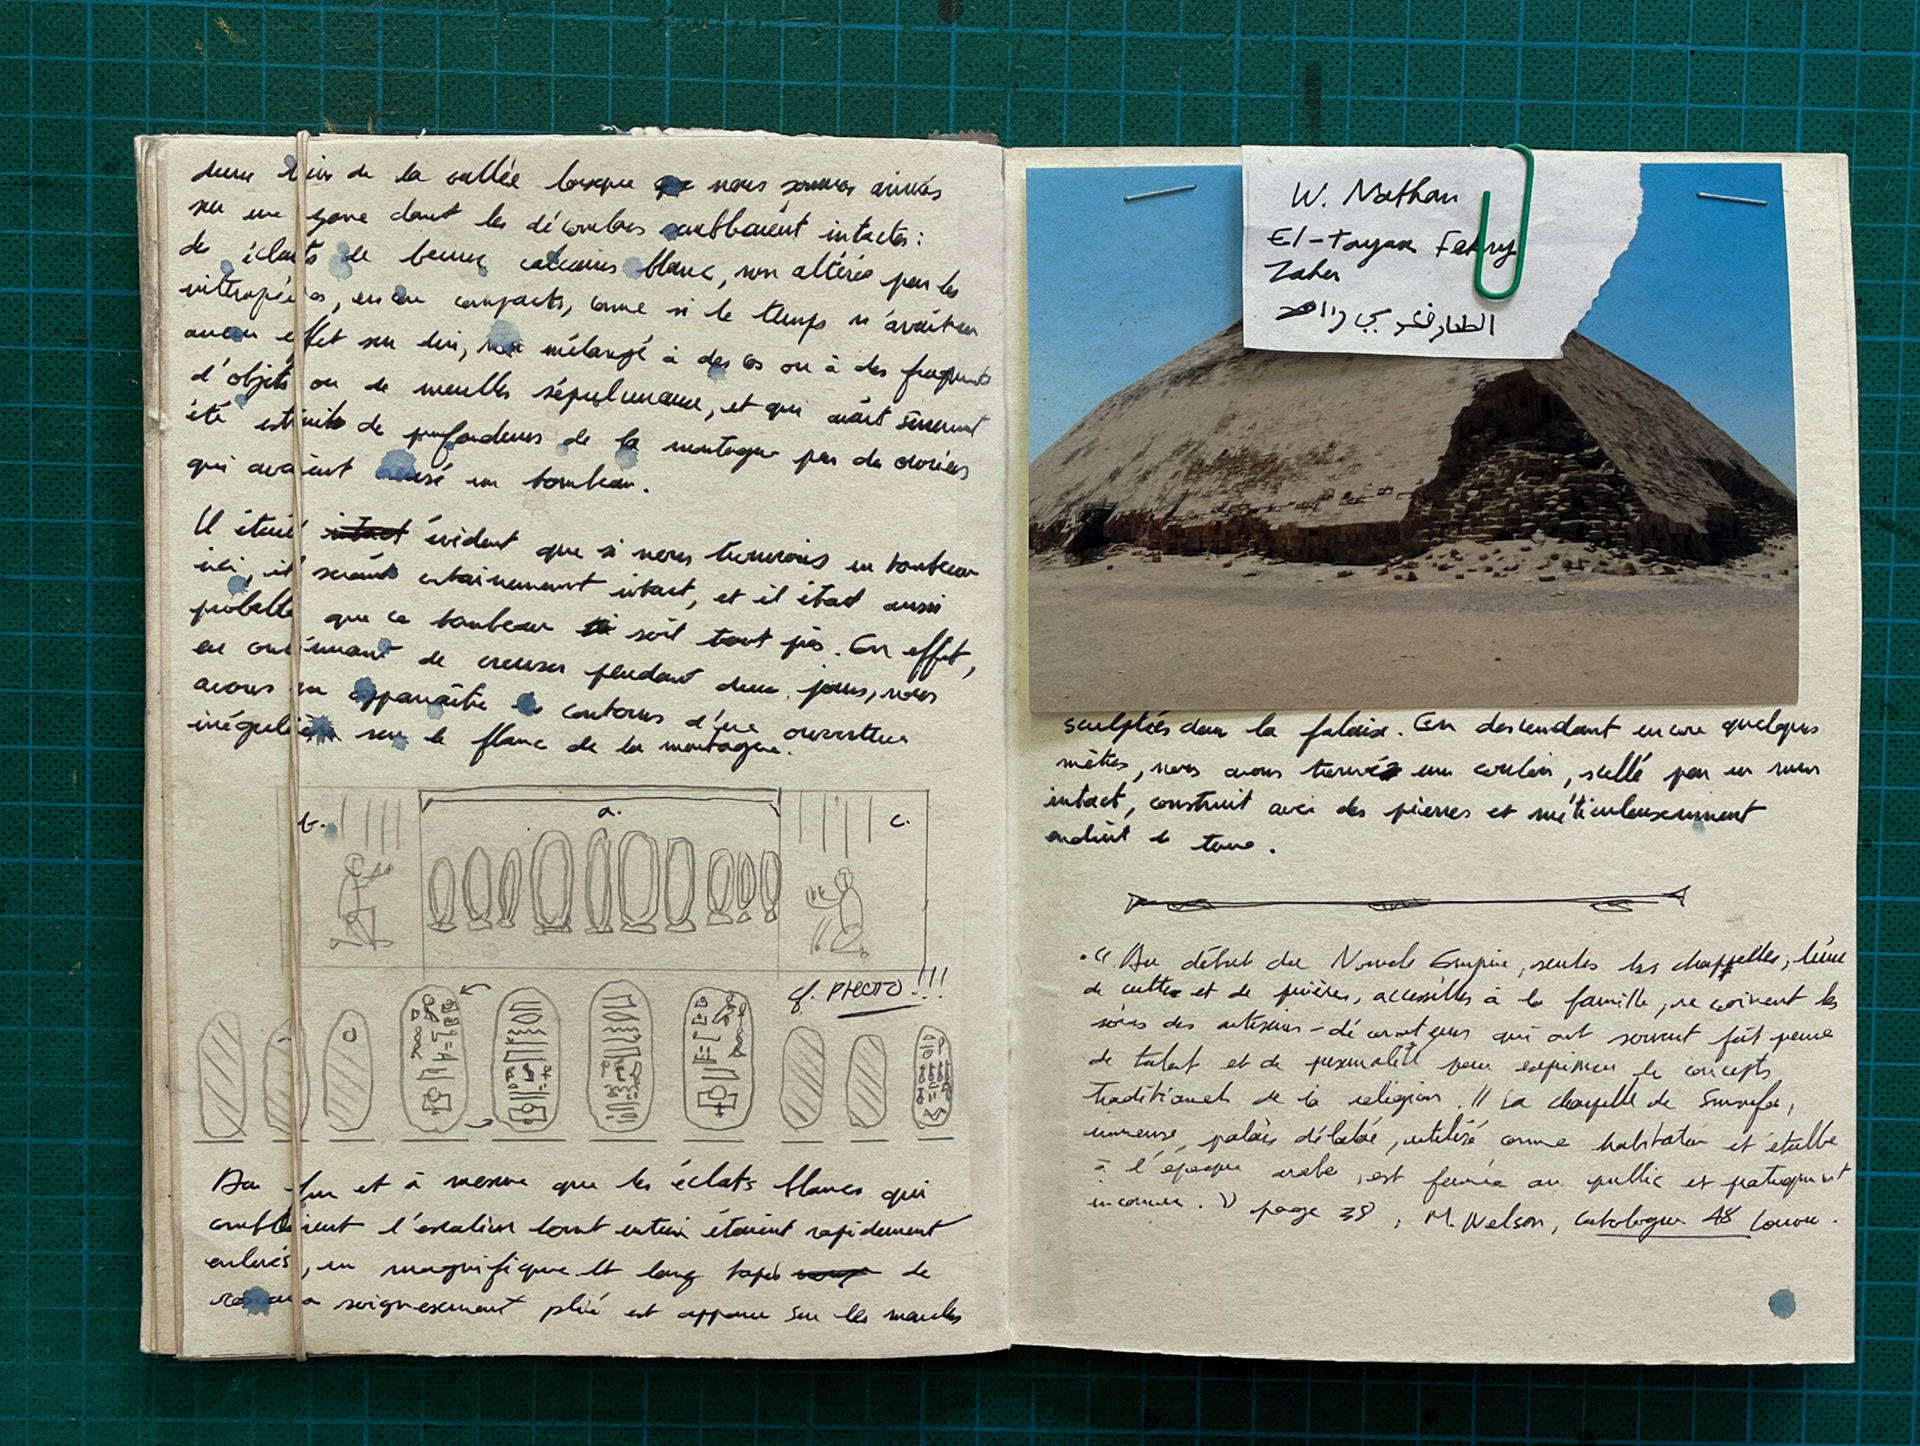 de la vallée lorsque nous sommes arrivés
sur une zone dont les décombres semblaient intactes :
des éclats de beau calcaire blanc, non altérés par les
intempéries, encore compacts, comme si le temps n'avait eu
aucun effet sur lui, non mélangé à des os ou à des fragments
d'objets ou de meubles sépulcraux, et qui avait sûrement
été extraits de profondeurs de la montagne par des ouvriers
qui avaient creusé un tombeau.
Il était évident que si nous trouvions un tombeau
ici, il serait certainement intact, et il était aussi
probable que ce tombeau soit tout près. En effet,
en continuant de creuser pendant deux jours, nous
avons vu apparaître les contours d'une ouverture
irrégulière sur le flanc de la montagne.
b.
a.
c.
cf. PHOTO !!!
Au fur et à mesure que les éclats blancs qui
comblaient l'escalier tout entier étaient rapidement
enlevés, un magnifique et long tapis de
roseaux soigneusement plié est apparu sur les marches
W. Nathan
El-Tayar Fekry
Zaher
الطيار فكري زاهر
sculptées dans la falaise. En descendant encore quelques
mètres, nous avons trouvé un couloir, scellé par un mur
intact, construit avec des pierres et méticuleusement
enduit de terre.
. « Au début du Nouvel Empire, seules les chappelles, lieux
de culte et de prières, accessibles à la famille, reçoivent les
soins des artisans-décorateurs qui ont souvent fait preuve
de talent et de personnalité pour exprimer les concepts
traditionnels de la religion. // La chapelle de
immense palais délabré, utilisé comme habitation et étable
à l'époque arabe, est fermée au public et pratiquement
inconnue. » page 38, M. Nelson, Catalogue 48 Louvre.